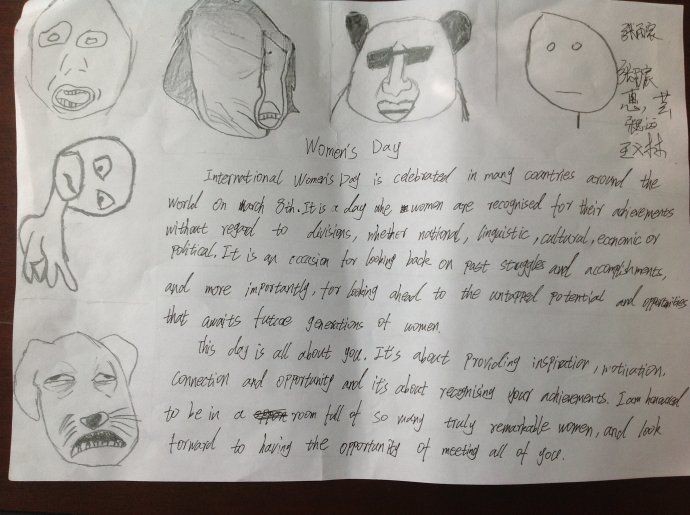 Women's Day
International Women's Day is celebrated in many countries around the
world on March 8th. It is a day whe women are recognised for their achievements
without regard to divisions, whether national, linguistic, cultural, economic or
political. It is an occasion for looking back on past struggles and accomplishments,
and more importantly, for looking ahead to the untapped potential and opportunities
that awaits future generations of women.
This day is all about you. It's about providing inspiration, motivation,
connection and opportunity and it's about recognising your achievements. I am honored
to be in a room full of so many truly remarkable women, and look
forward to having the opportunity of meeting all of you.